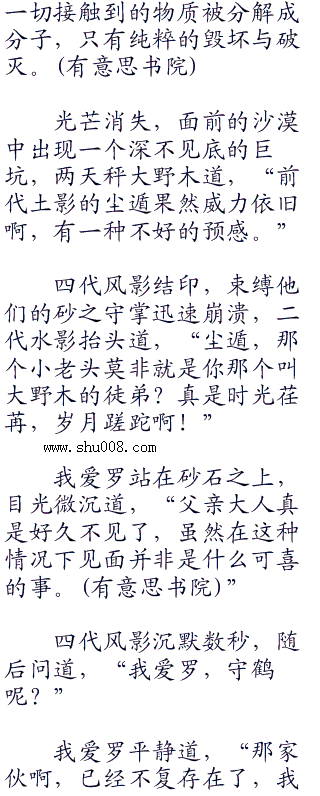 一切接触到的物质被分解成
分子，只有纯粹的毁坏与破
灭。(有意思书院)
光芒消失，面前的沙漠
中出现一个深不见底的巨
坑，两天秤大野木道，“前
代土影的尘遁果然威力依旧
啊，有一种不好的预感。”
四代风影结印，束缚他
们的砂之守掌迅速崩溃，二
代水影抬头道，“尘遁，那
个小老头莫非就是你那个叫
大野木的徒弟？真是时光荏
苒，岁月蹉跎啊！”
www.shu008.com
我爱罗站在砂石之上，
目光微沉道，“父亲大人真
是好久不见了，虽然在这种
情况下见面并非是什么可喜
的事。(有意思书院)”
四代风影沉默数秒，随
后问道，“我爱罗，守鹤
呢？”
我爱罗平静道，“那家
伙啊，已经不复存在了，我